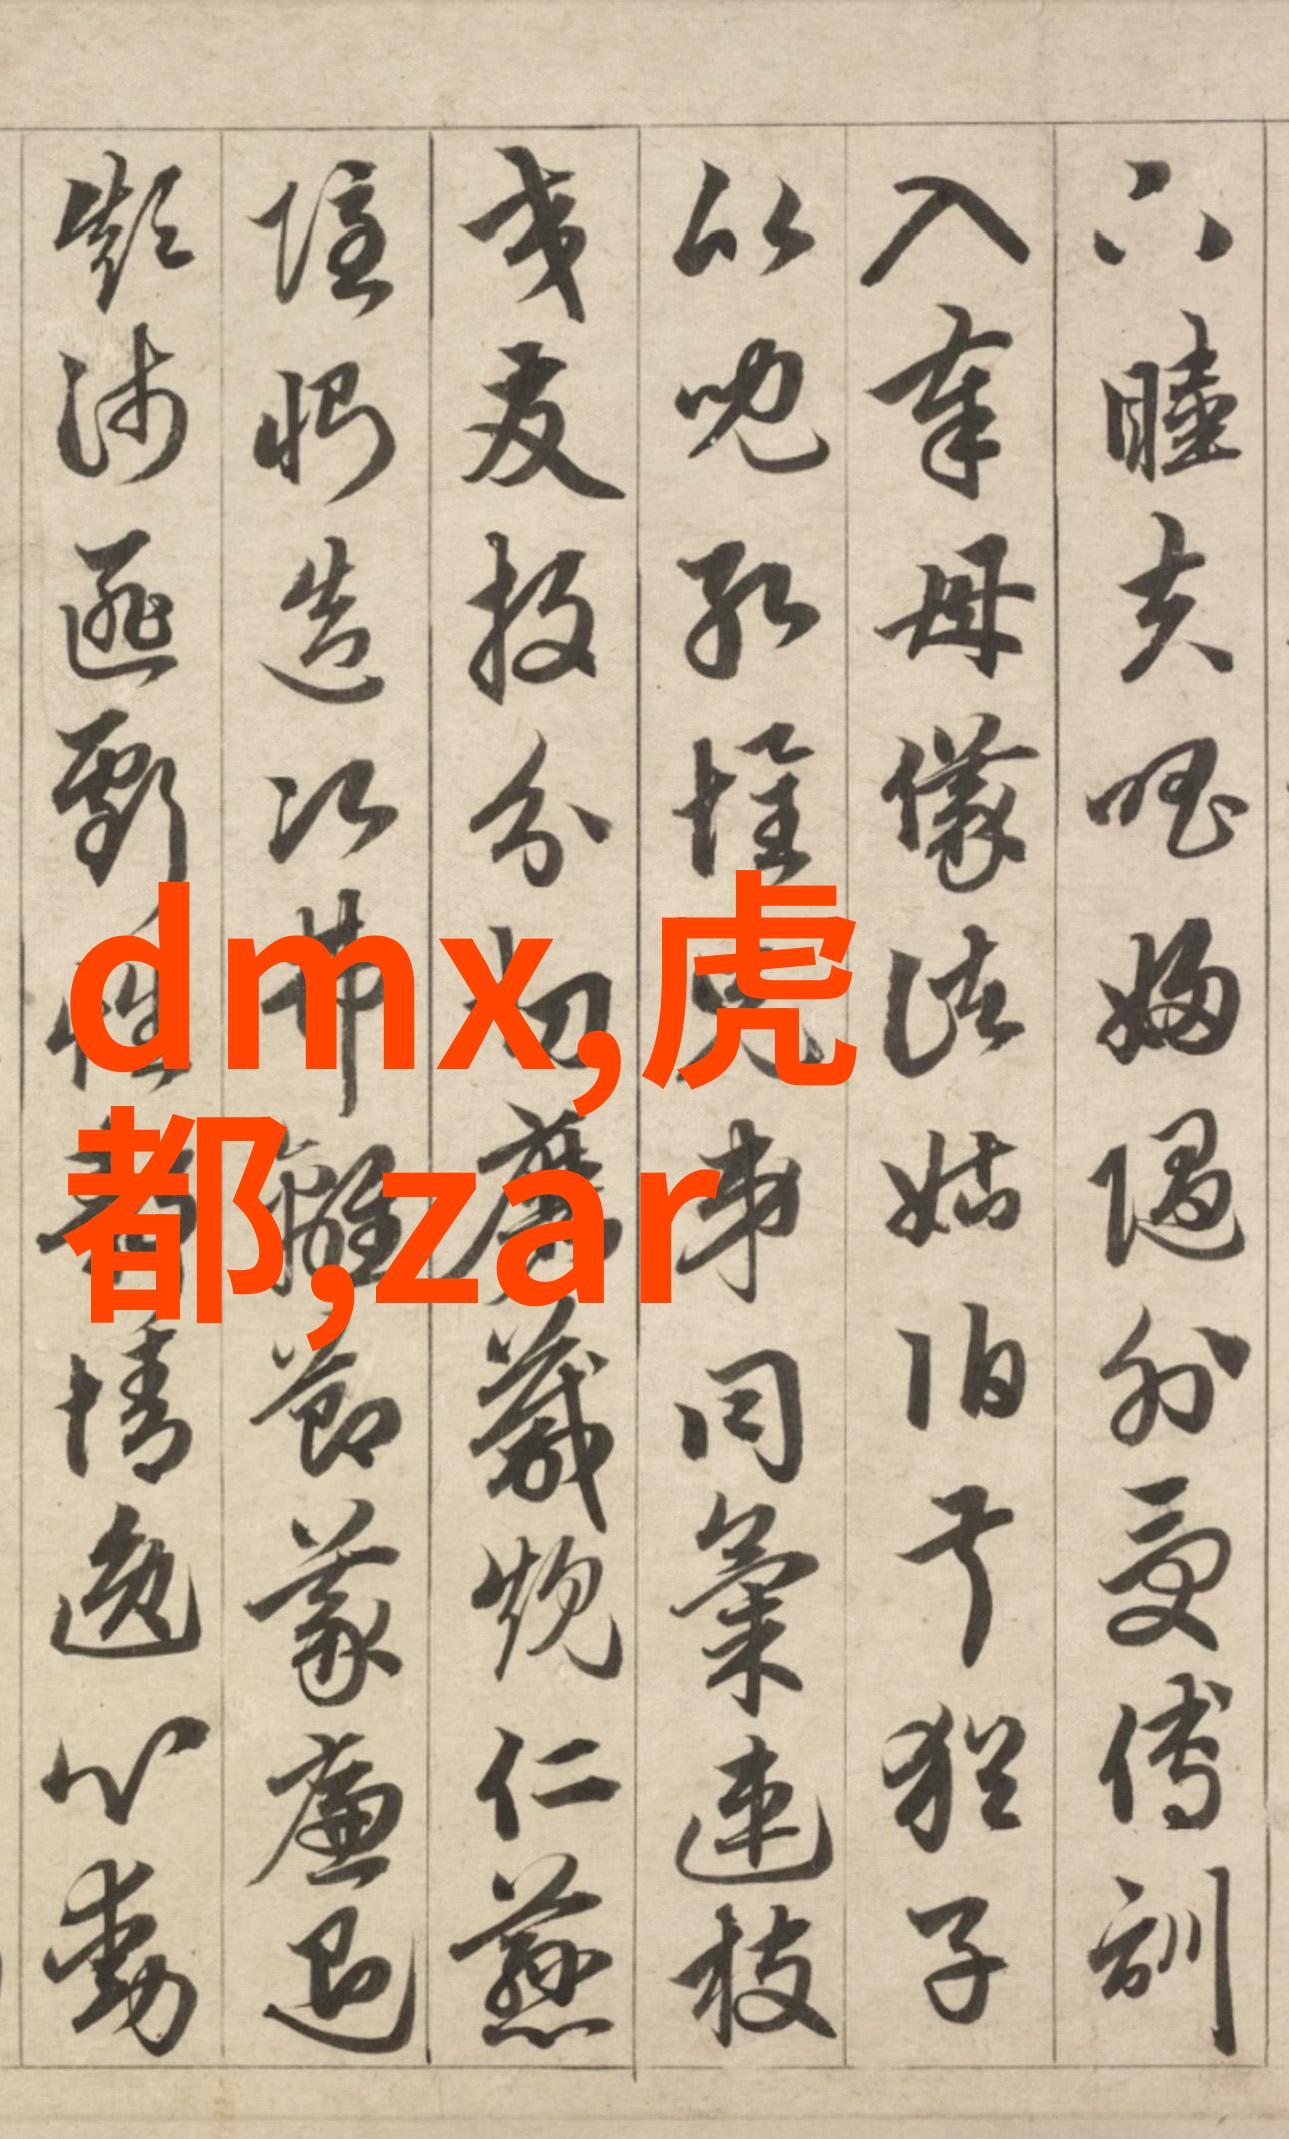 下睦夫唱婦隨外受傅訓
入奉母儀諸姑伯叔猶子
比兒孔懷兄弟同氣連枝
交友投分切磨箴規仁慈
隱惻造次弗離節義廉退
顛沛匪虧性靜情逸心動
dmx,虎
都,zar